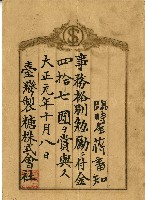 臨時屋務書知
事務格別勉勵付金
四拾七圓ヲ賞與ス
大正元年十月八日
臺灣製糖株式會社